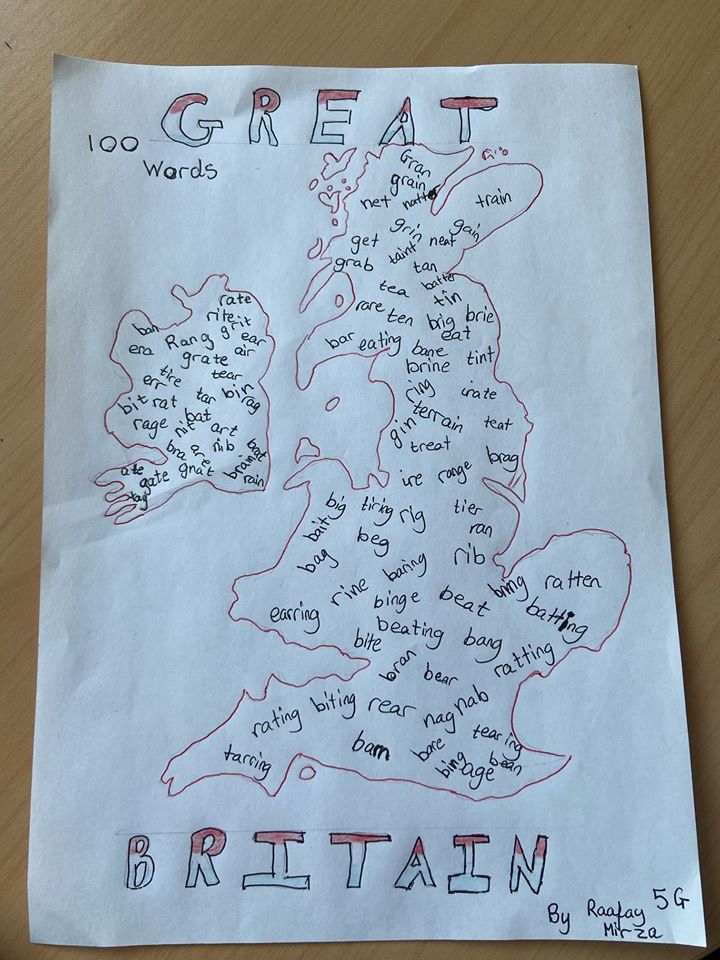 GREAT
100
Words
Gran
grain
net
natter
train
grin
gain
get
taint
neat
grab
tan
tea
batter
tin
rare
ten
brig
brie
eat
bar
eating
bane
tint
brine
ring
irate
terrain
teat
gin
treat
brag
ire
range
rate
rite
grit
ban
Rang
ear
era
air
grate
tire
tear
err
bin
bit
rat
tar
rag
bat
rage
nit
art
bra
are
nib
bat
ate
gate
gnat
brain
rain
tag
big
tiring
rig
tier
bait
ran
beg
bag
baring
rib
rine
bring
ratten
earring
binge
beat
batting
beating
bite
bang
bran
ratting
bear
rating
biting
rear
nag
nab
tearing
tarring
barn
bare
bean
bing
age
BRITAIN
By Raafay 5G
Mirza